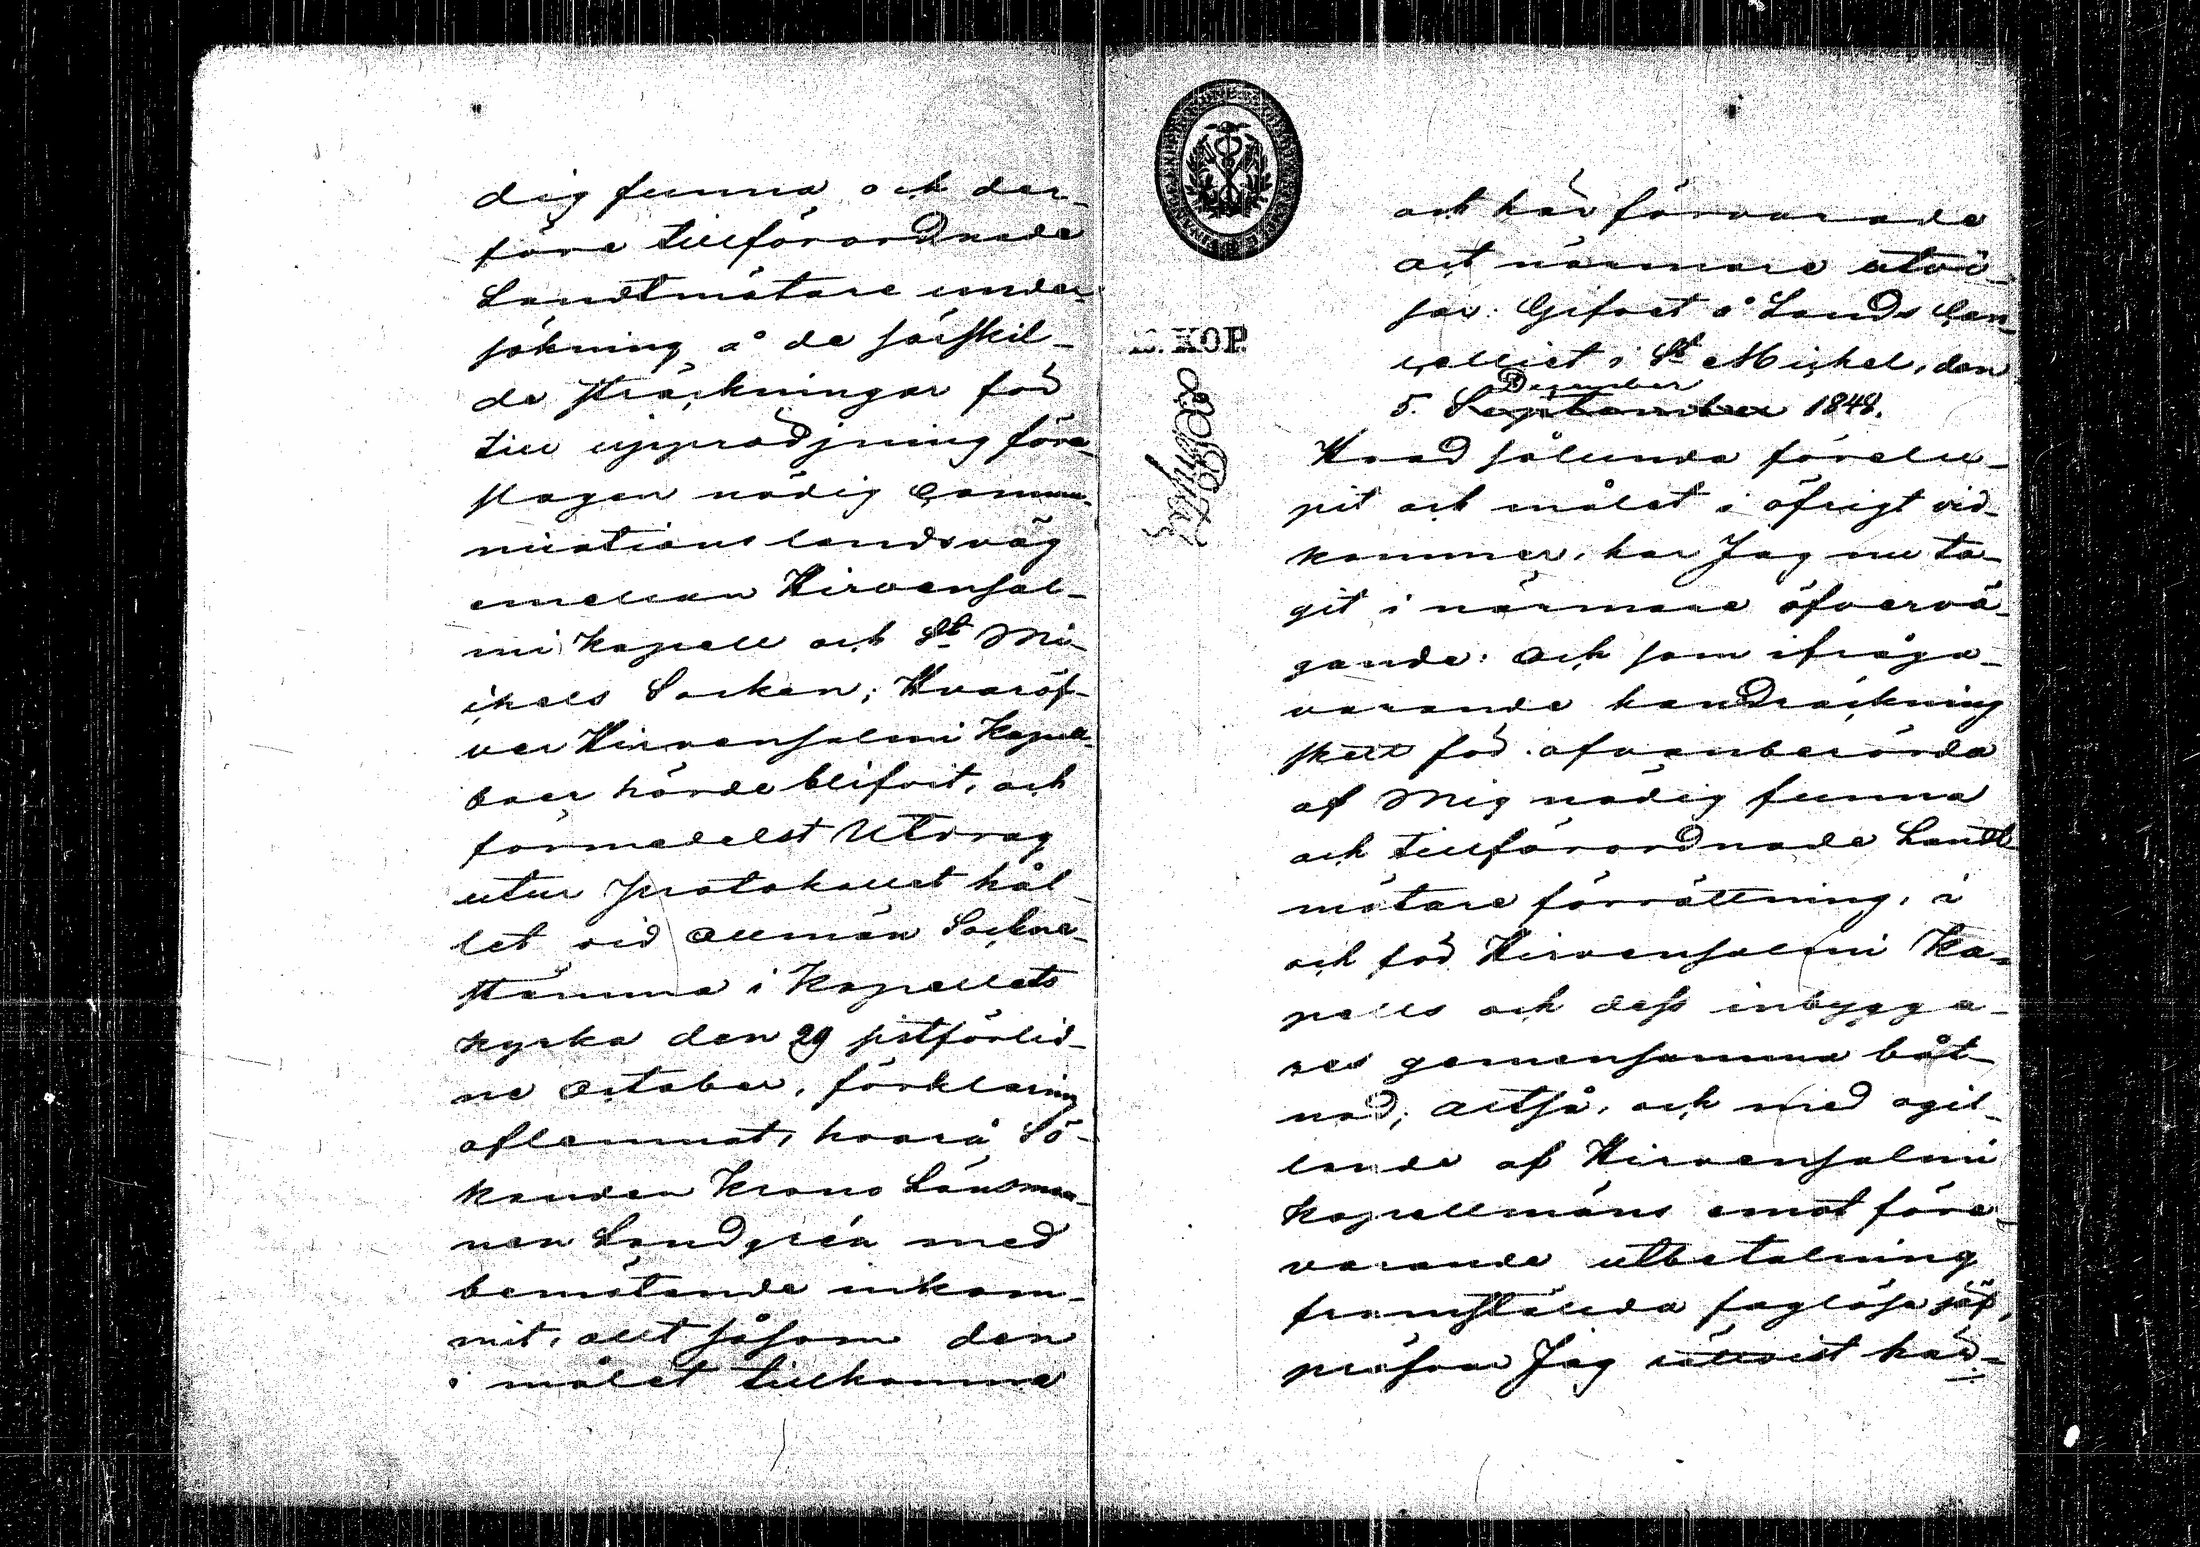 dig funna och der-
före tillförordnade
Landtmätare under-
sökning å de särskil-
de sträckningar för
till upprödjning före-
slagen nödig Commu-
nications landsväg
emellan Hirvensal-
mi Kapell och St Mi-
chels Socken; Hvaröf-
ver Hirvensalmi Kapell-
boer hörde blifvit, och
förmedelst Utdrag
utur Protokollet hål-
let vid allmän Sockne-
stämma i Kapellets
kyrka den 29 sistförlid-
ne October, förklaring
aflemnat, hvarå Sö-
kanden Krono Länsman-
nen Landgrén med
bemötande inkom-
mit, allt såsom den
i målet tillkomne
och här förvarade
act närmare utvi-
sar. Gifvet å Lands Can-
celliet i St Michel, den
December
5. September 1848.
Hvad sålunda förelu-
pit och målet i öfrigt vid-
kommer, har Jag nu ta-
git i närmare öfvervä-
gande: Och som ifråga-
varande handräckning
skett för ofvanberörda
af Mig nödig funna
och tillförordnade Landt-
mätare förrättning, i
och för Hirvensalmi Ka-
pells och dess inbygga-
res gemensamma båt-
nad; altså, och med ogil-
lande af Hirvensalmi
Kapellmäns emot före-
varande utbetalning
framställda foglösa jäf,
pröfvar Jag rättvist här-